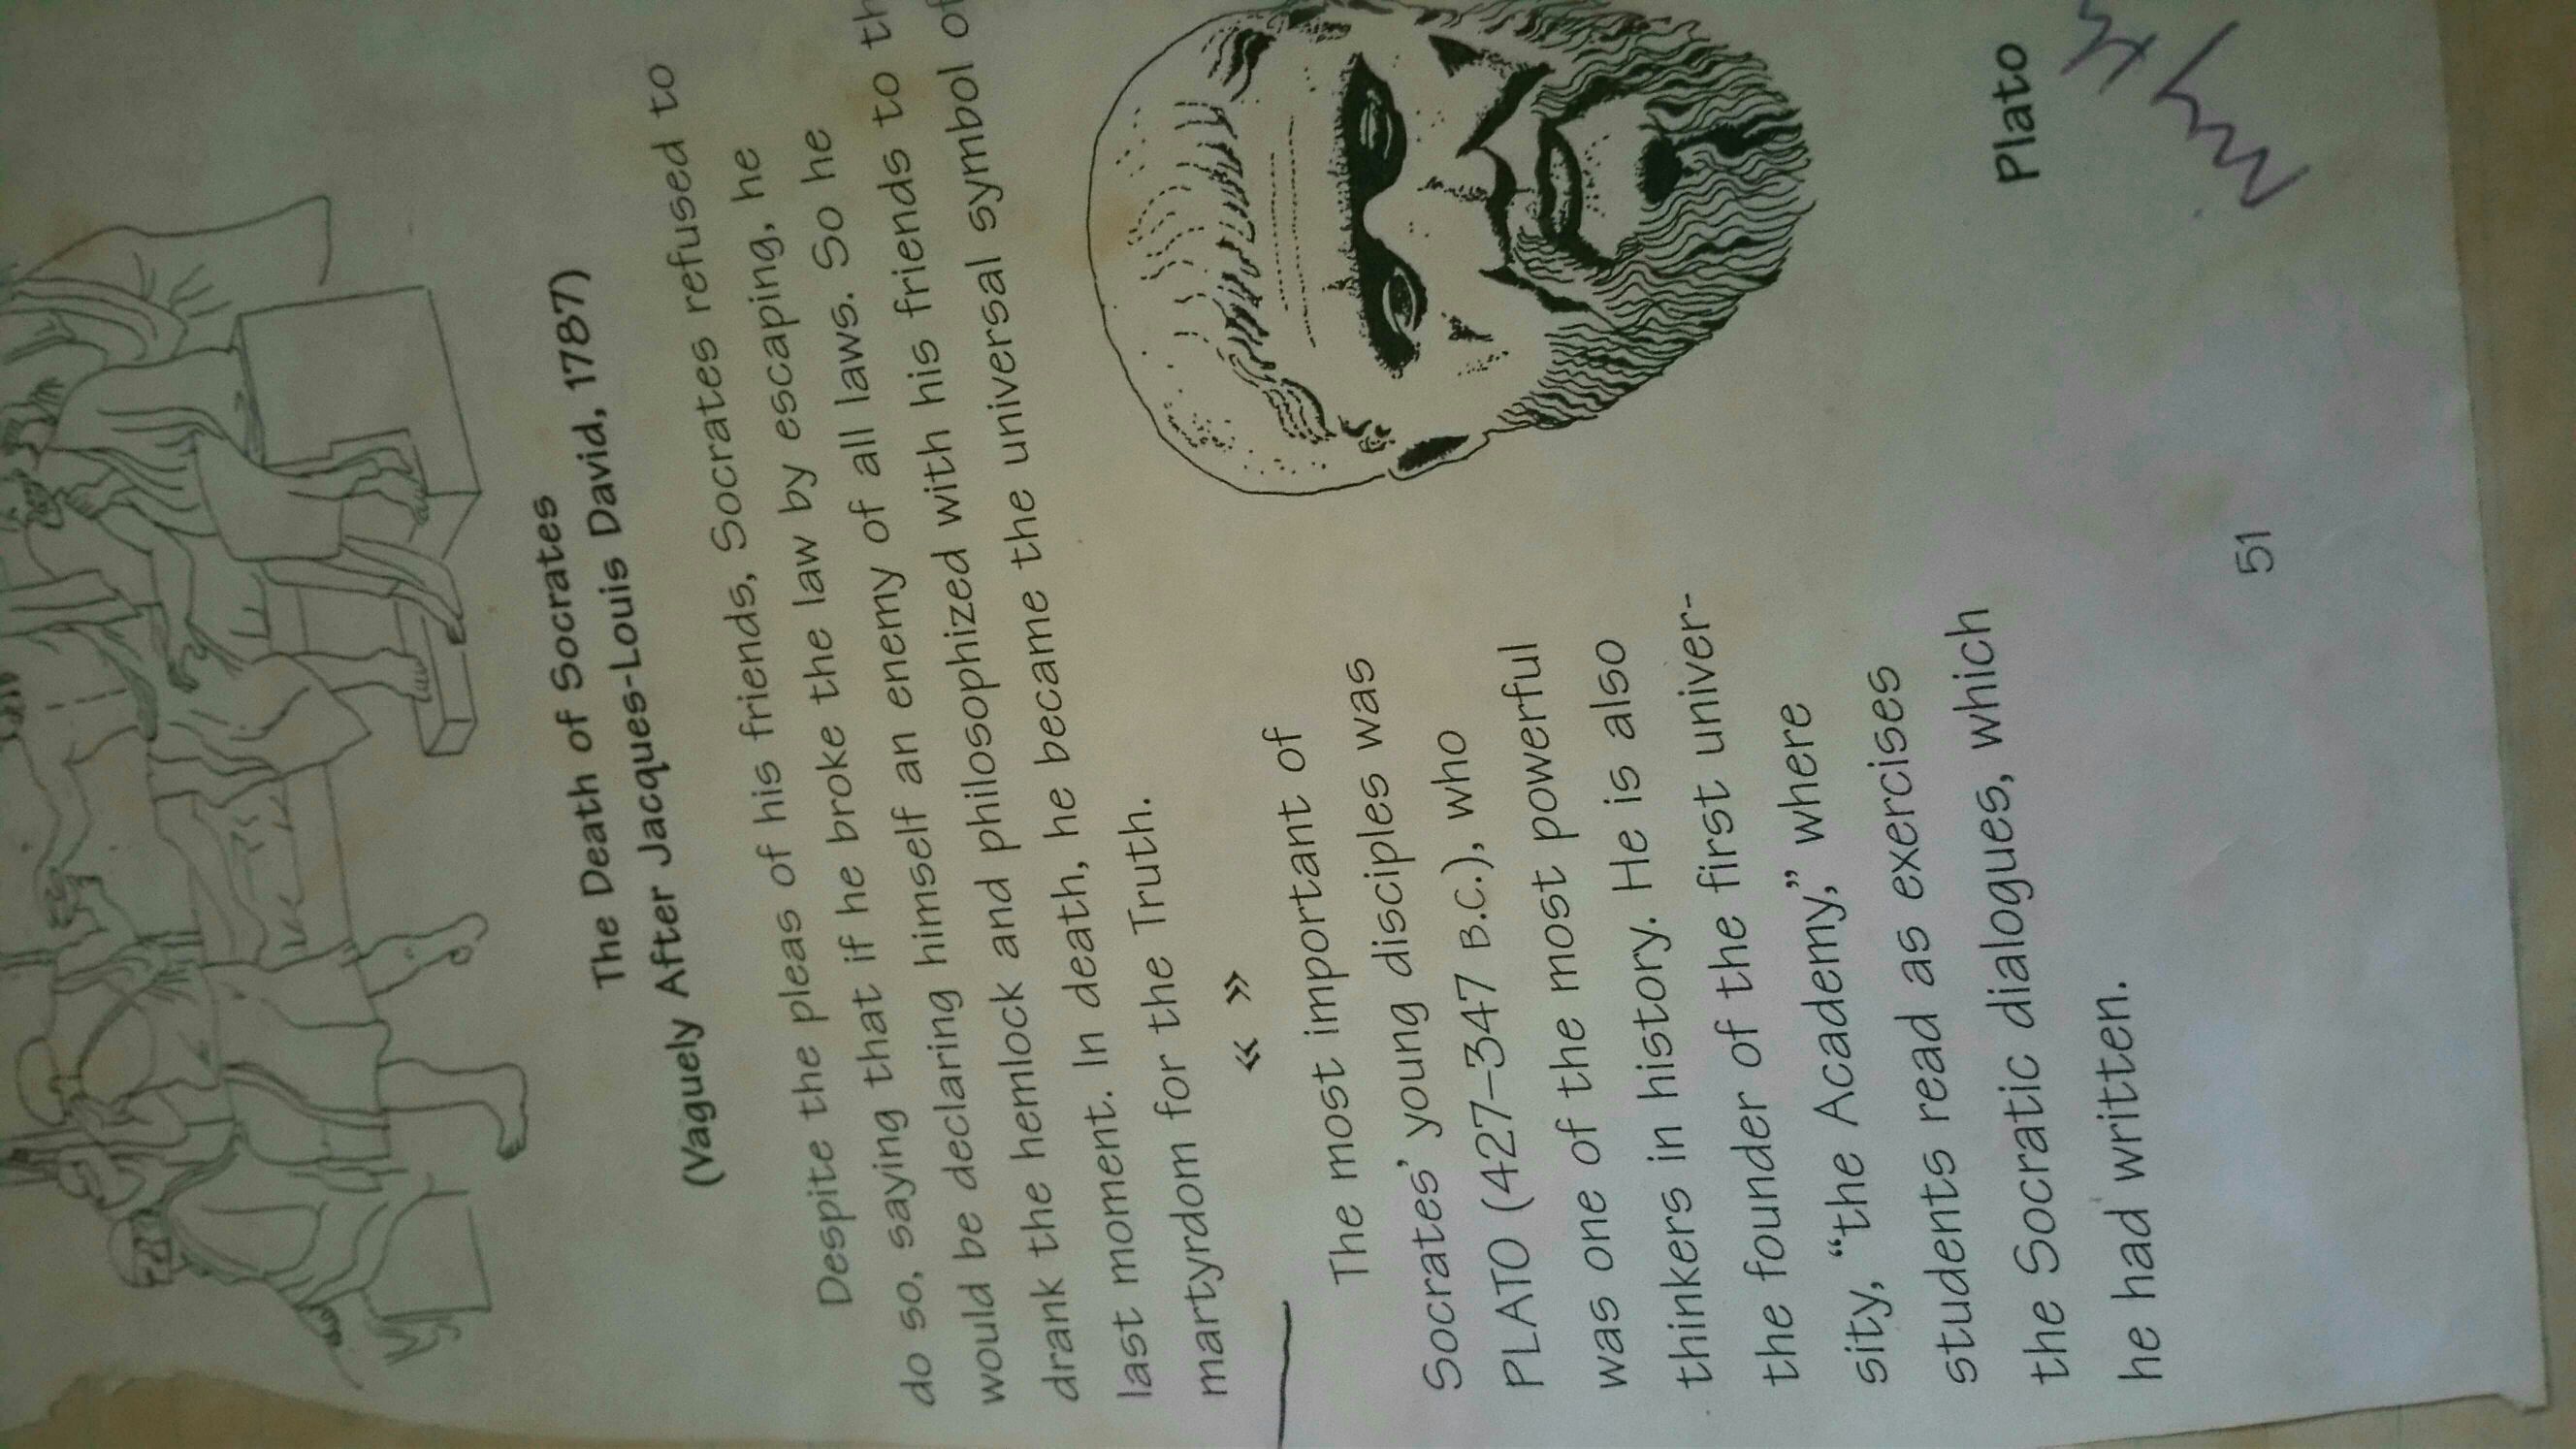 The Death of Socrates
(Vaguely After Jacques-Louis David, 1787)
Despite the pleas of his friends, Socrates refused to
do so, saying that if he broke the law by escaping, he
would be declaring himself an enemy of all laws. So he
drank the hemlock and philosophized with his friends to th
last moment. In death, he became the universal symbol of
martyrdom for the Truth.
« »
The most important of
Socrates' young disciples was
PLATO (427–347 B.C.), who
was one of the most powerful
thinkers in history. He is also
the founder of the first univer-
sity, “the Academy,” where
students read as exercises
the Socratic dialogues, which
he had written.
Plato
51